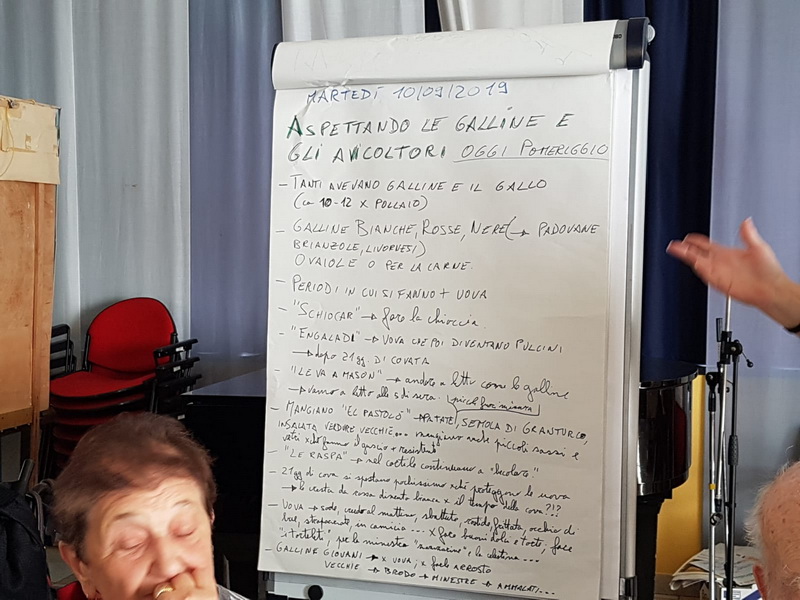 MARTEDÍ 10/09/2019
ASPETTANDO LE GALLINE E
GLI AVICOLTORI OGGI POMERIGGIO
- TANTI AVEVANO GALLINE E IL GALLO
(ca 10-12 X POLLAIO)
- GALLINE BIANCHE, ROSSE, NERE (→ PADOVANE
BRIANZOLE, LIVORNESI)
OVAIOLE O PER LA CARNE
- PERIODI IN CUI SI FANNO + UOVA
- "SCHIOCAR" → fare la chioccia
- "ENGALADI" → UOVA CHE POI DIVENTANO PULCINI
→ dopo 21 gg. DI COVATA
- "ILE VA A MASON" → andare a letto come le galline
→ vanno a letto alle 5 di sera
- MANGIANO "EL PASTOLO" → PATATE, SEMOLA DI GRANTURCO,
INSALATA, VERDURE VECCHIE... mangiano anche piccoli sassi e
x fanno il guscio + resistente
- "LE RASPA" → nel cortile continuano a "becolare"
- 21 gg di cova si spostano pochissimo xché proteggono le uova
→ la cresta da rossa diventa bianca x il tempo della cova?!?
- UOVA → sode, crudo al mattino, sbattuto, rotido, frittata, occhio di
bue, strapazzati, in camicia ... x fare buoni dolci e torte, fare
i "tortelli", per la minestra
- GALLINE GIOVANI → X UOVA; x farle ARROSTO
VECCHIE → BRODO → MINESTRE → AMMALATI...